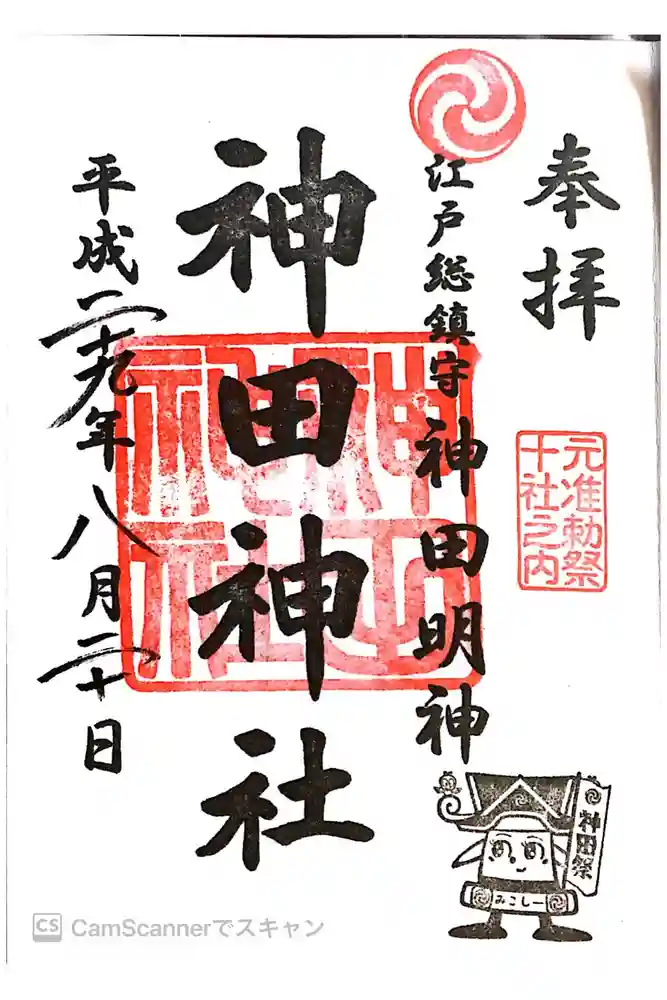 奉拝
元准勅祭
十社之内
江戸総鎮守 神田明神
神田神社
神田神社
平成二十九年八月二十日
神田祭
みこしー
CS CamScannerでスキャン